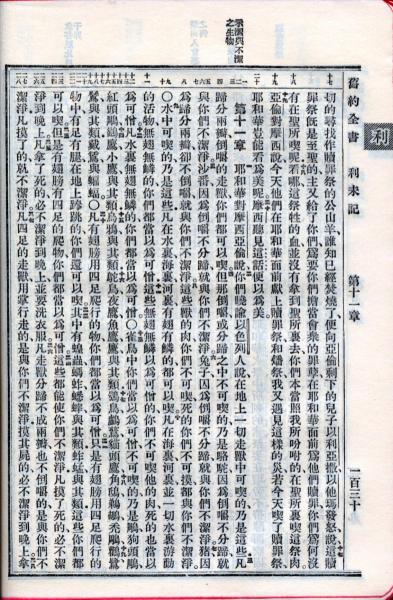 聖潔與不潔之生物
利
舊約全書 利未記 第十一章 一百三十
切的尋找作贖罪祭的公山羊誰知已經焚燒了便向亞倫剩下的兒子以利亞撒以他瑪發怒說這贖
罪祭旣是至聖的主又給了你們爲要你們擔當會衆的罪孽在耶和華面前爲他們贖罪你們爲何沒
有在聖所喫呢看哪這祭牲的血並沒有拿到聖所裏去你們本當照我所吩咐的在聖所裏喫這祭肉
亞倫對摩西說今天他們在耶和華面前獻上贖罪祭和燔祭我又遇見這樣的災若今天喫了贖罪祭
耶和華豈能看爲美呢摩西聽見這話便以爲美
第十一章 耶和華對摩西亞倫說你們曉諭以色列人說在地上一切走獸中可喫的乃是這些凡
蹄分兩瓣倒嚼的走獸你們都可以喫但那倒嚼或分蹄之中不可喫的乃是駱駝因爲倒嚼不分蹄就
與你們不潔淨沙番因爲倒嚼不分蹄就與你們不潔淨兔子因爲倒嚼不分蹄就與你們不潔淨猪因
爲蹄分兩瓣卻不倒嚼就與你們不潔淨這些獸的肉你們不可喫死的你們不可摸都與你們不潔淨
〇水中可喫的乃是這些凡在水裏海裏河裏有翅有鱗的都可以喫凡在海裏河裏並一切水裏游動
的活物無翅無鱗的你們都當以爲可憎這些無翅無鱗以爲可憎的你們不可喫他的肉死的也當以
爲可憎凡水裏無翅無鱗的你們都當以爲可憎〇雀鳥中你們當以爲可憎不可喫的乃是鵰狗頭鵰
紅頭鵰鷂鷹小鷹與其類烏鴉與其類鴕鳥夜鷹魚鷹鷹與其類鴞鳥鸕鶿貓頭鷹角鴟鵜鶘禿鵰鸛鷺
鷥與其類戴鵀與蝙蝠〇凡有翅膀用四足爬行的物你們都當以爲可憎只是有翅膀用四足爬行的
物中有足有腿在地上蹦跳的你們還可以喫其中有蝗蟲螞蚱蟋蟀與其類蚱蜢與其類這些你們都
可以喫但是有翅膀有四足的爬物你們都當以爲可憎這些都能使你們不潔淨凡摸了死的必不潔
淨到晚上凡拿了死的必不潔淨到晚上並要洗衣服凡走獸分蹄不成兩瓣也不倒嚼的是與你們不
潔淨凡摸了的就不潔淨凡四足的走獸用掌行走的是與你們不潔淨摸其屍的必不潔淨到晚上拿